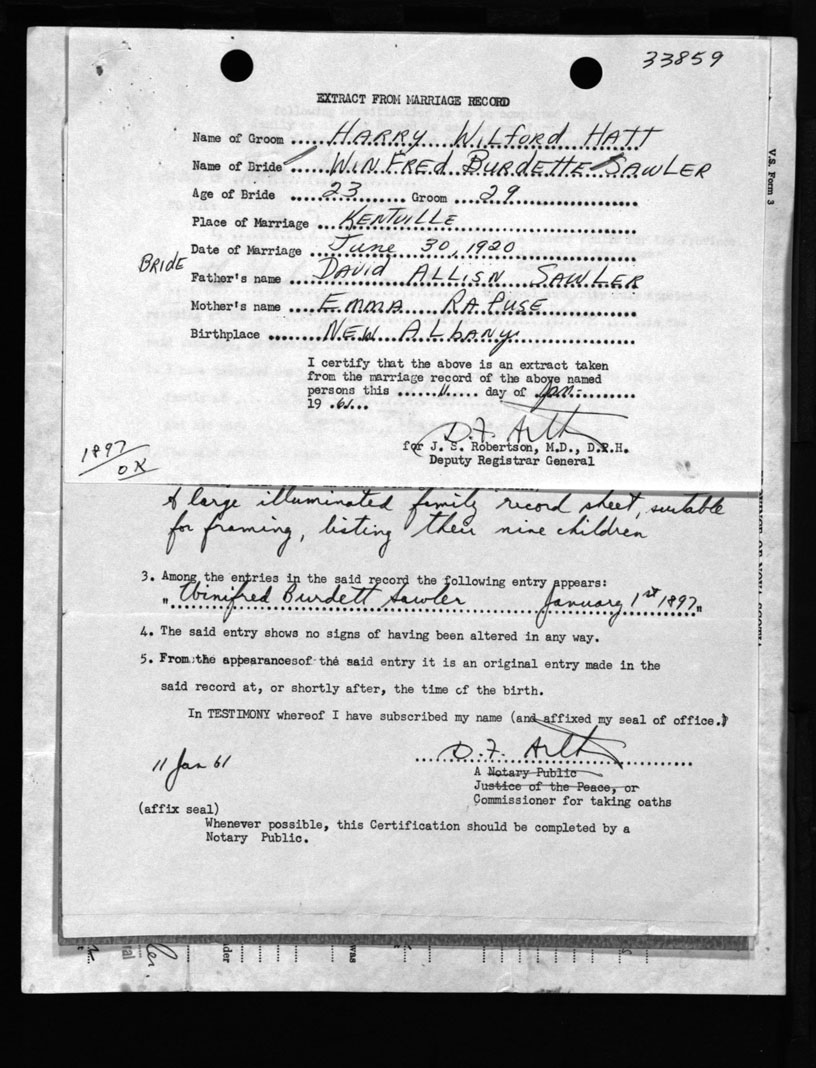 33859
EXTRACT FROM MARRIAGE RECORD
Name of Groom .... HARRY WILFORD HATT
Name of Bride .... WINFRED BURDETTE SAWLER
Age of Bride .... 23 .... Groom .... 29
Place of Marriage ... KENTVILLE
Date of Marriage .... June 30, 1920
BRIDE
Father's name .... DAVID ALLISN SAWLER
Mother's name .... EMMA RAFUSE
Birthplace .... NEW ALbANY
I certify that the above is an extract taken
from the marriage record of the above named
persons this ...... 11 ..... day of Jan.
19 .61...
D.F. Arlt
for J. S. Robertson, M.D., D.P.H.
Deputy Registrar General
1897
OK
V.S. Form 3
A large illuminated family record sheet, suitable
for framing, listing their nine children
3. Among the entries in the said record the following entry appears:
" Winifred Burdett Sawler January 1st 1897 "
4. The said entry shows no signs of having been altered in any way.
5. From the appearancesof the said entry it is an original entry made in the
said record at, or shortly after, the time of the birth.
In TESTIMONY whereof I have subscribed my name (and affixed my seal of office.)
D.F. Arlt
11 Jan 61
A Notary Public
Justice of the Peace, or
Commissioner for taking oaths
(affix seal)
Whenever possible, this Certification should be completed by a
Notary Public.
was